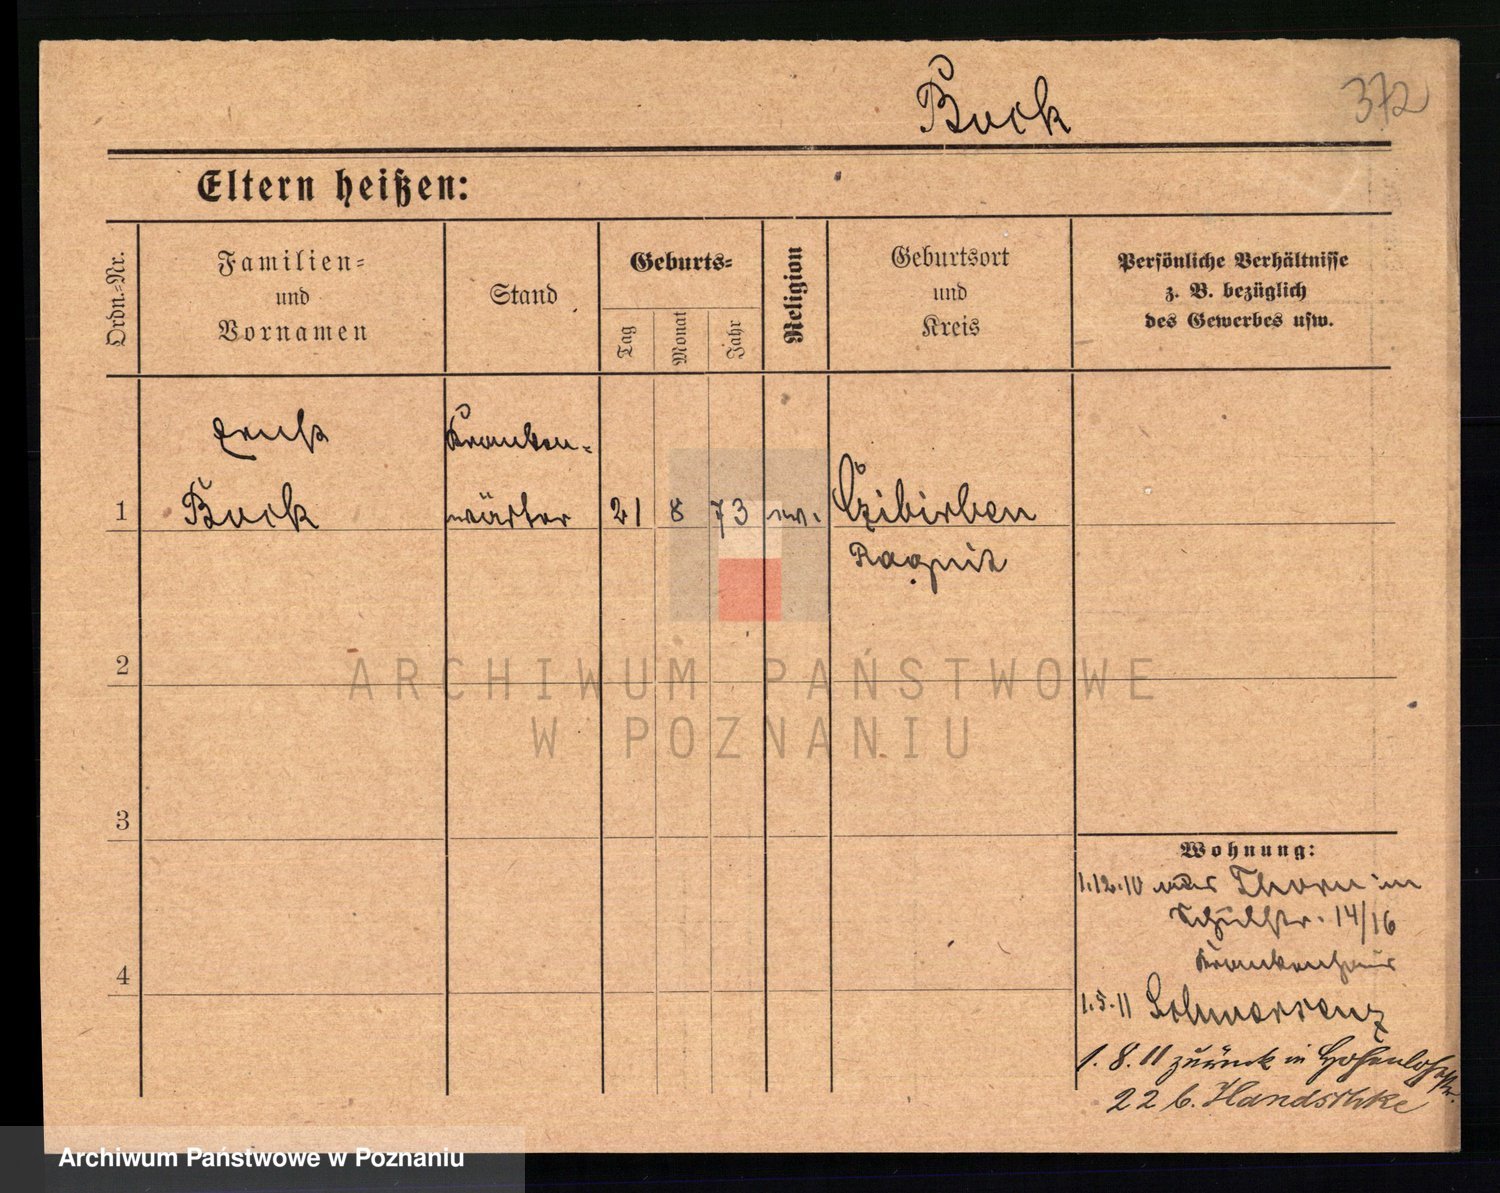 Bock
372
Eltern heißen:
Ordn.-Nr.
Familien-
und
Vornamen
Stand
Geburts-
Tag
Monat
Jahr
Religion
Geburtsort
und
Kreis
Persönliche Verhältnisse
z. B. bezüglich
des Gewerbes usw.
Ernst
Kranken-
1 Bock wärter 21 8 73 ev. Czibirben
Ragnit
2
ARCHIWUM PAŃSTWOWE
W POZNANIU
3
Wohnung:
1.12.10 aus Thorn in
Schulstr. 14/16
Krankenhaus
4
1.5.11 Schwersenz
1.8.11 zurück in Hohenlohestr.
22 b. Handschke
Archiwum Państwowe w Poznaniu